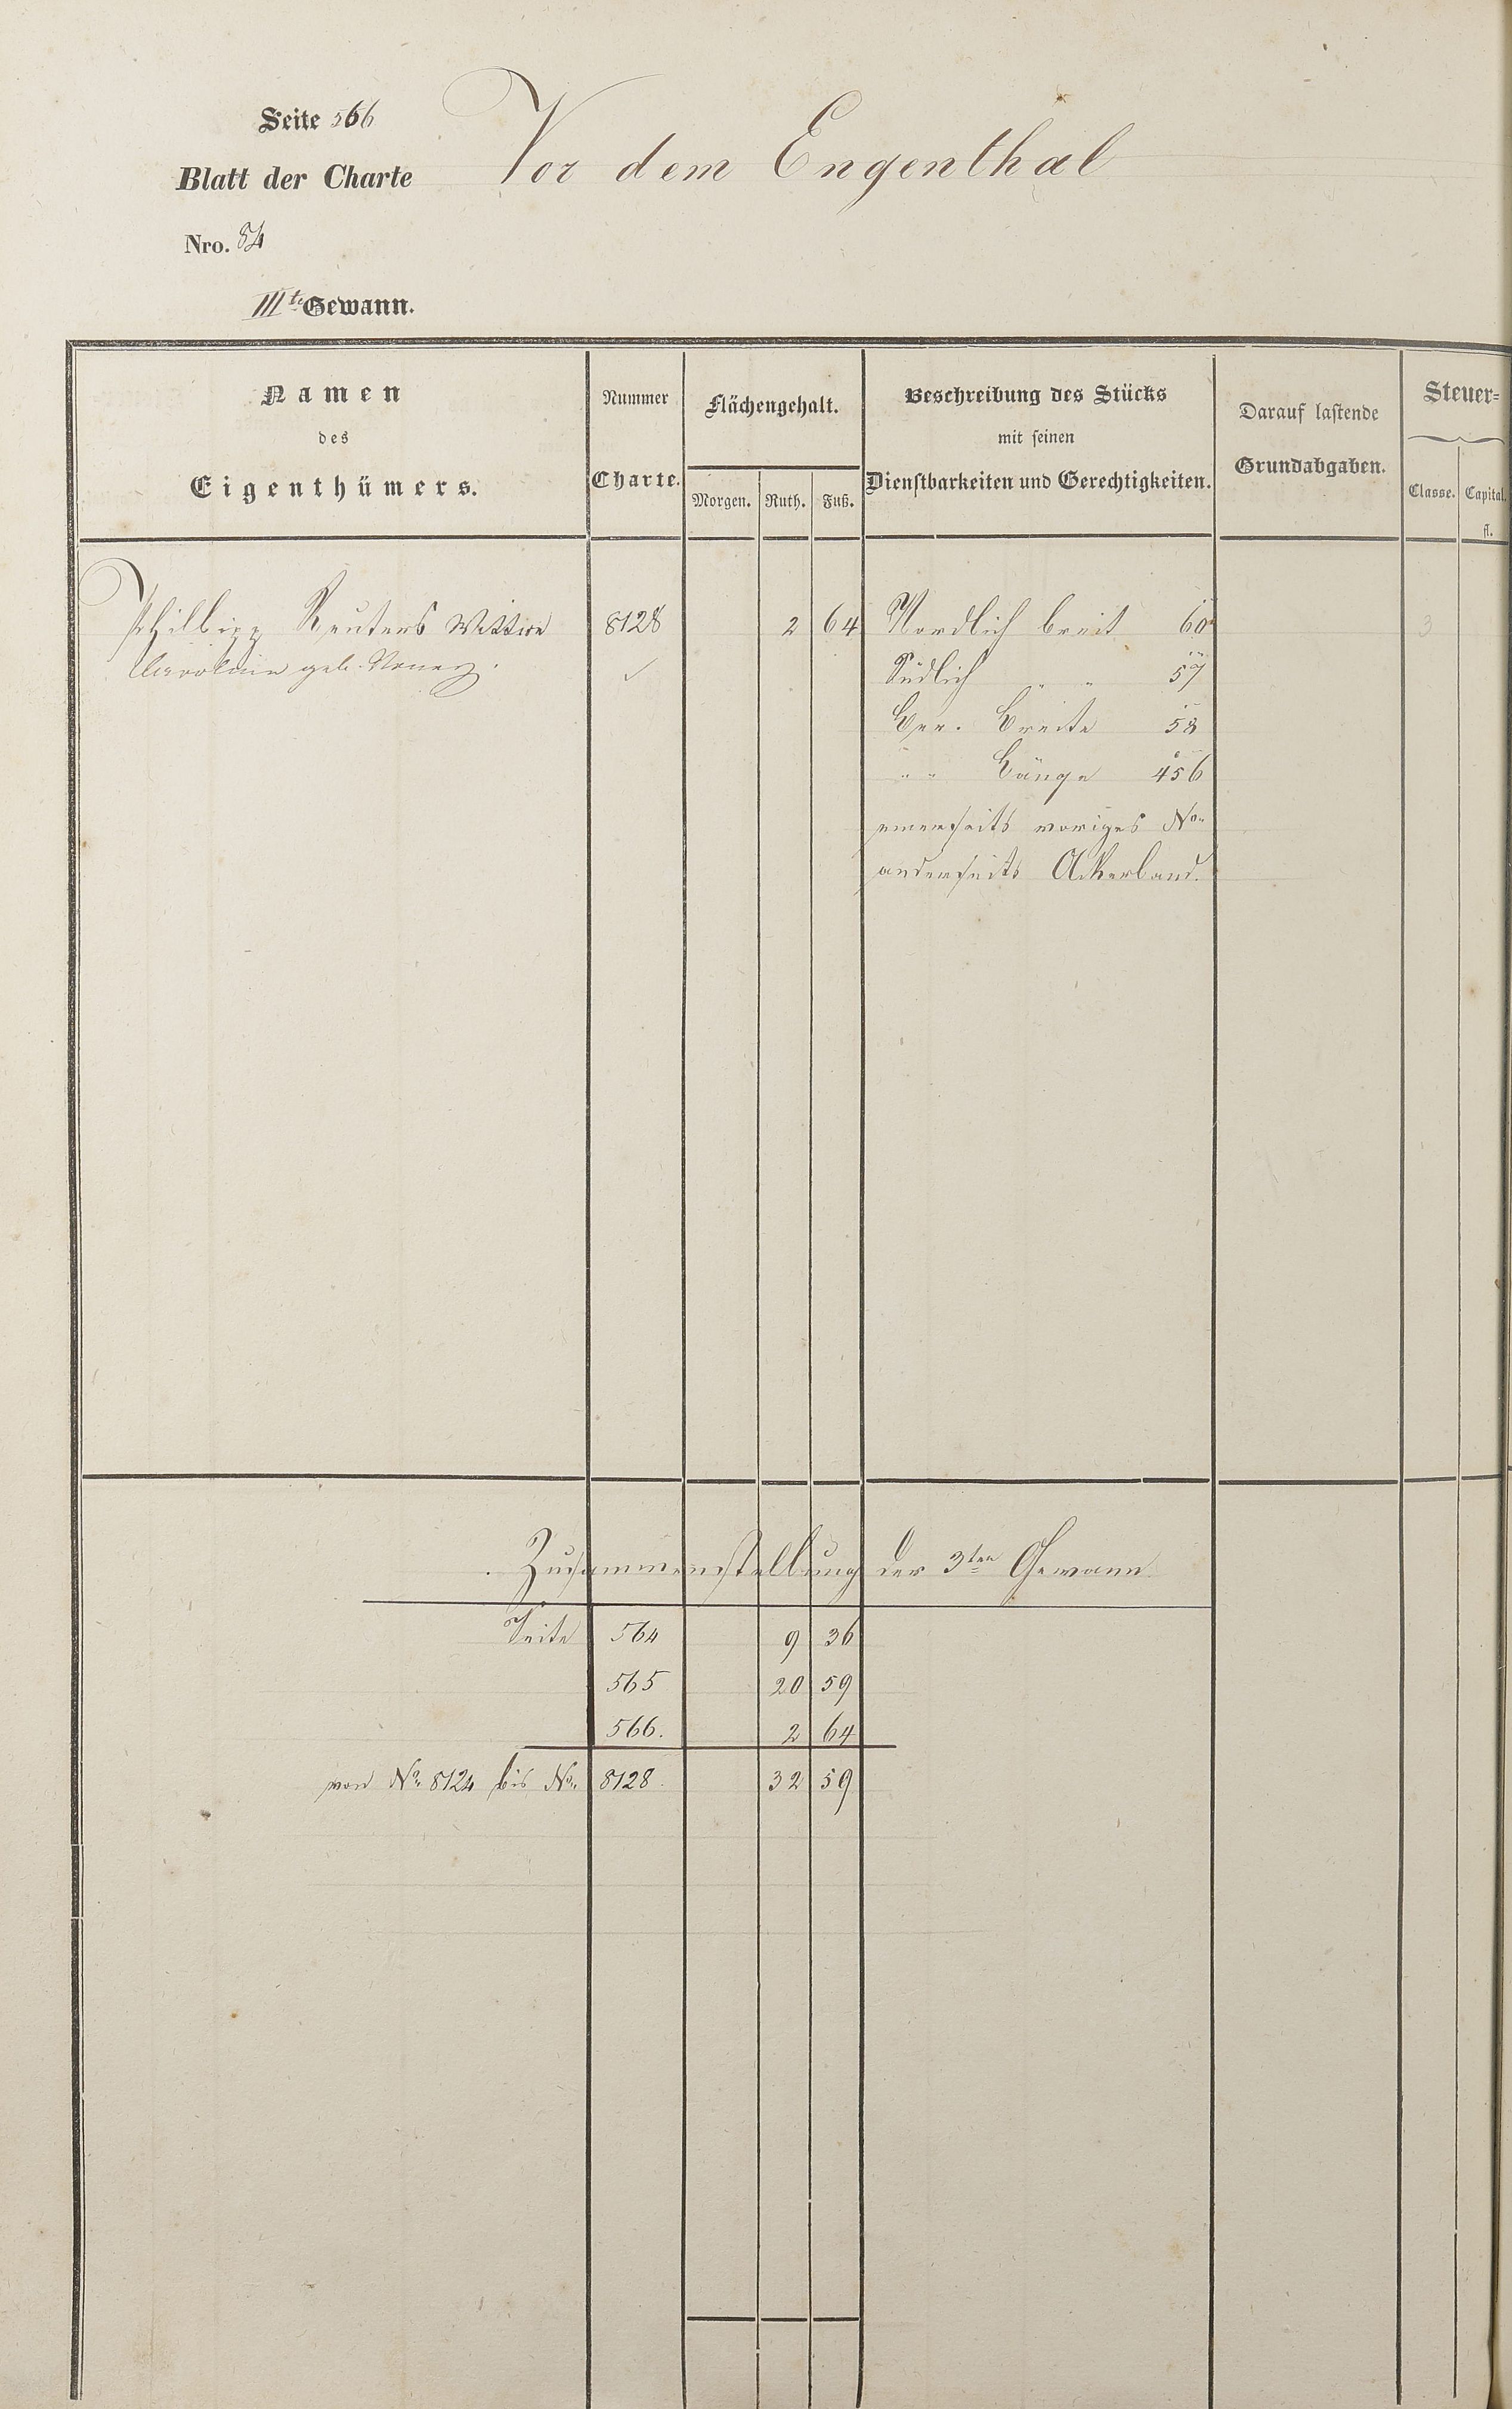 Seite 566
Vor dem Engenthal
Blatt der Charte
Nro. 84
III.te Gewann.
Namen
des
Eigenthümers.
Nummer
Charte.
Flächengehalt.
Morgen. Ruth. Fuß.
Beschreibung des Stücks
mit seinen
Dienstbarkeiten und Gerechtigkeiten.
Darauf lastende
Grundabgaben.
Steuer-
Classe. Capital.
fl.
Philipp Reuters Wittwe 8128 2 64 Nordlich breit 60 3
Carolina geb. Südlich " " 57
Ger. Breite 58
" " Länge 456
einerseits voriges No.
anderseits Ackerland.
Zusammenstellung der 3ten Gewann
Seite 564 9 36
565 20 59
566. 2 64
von No. 8124 bis No. 8128. 32 59